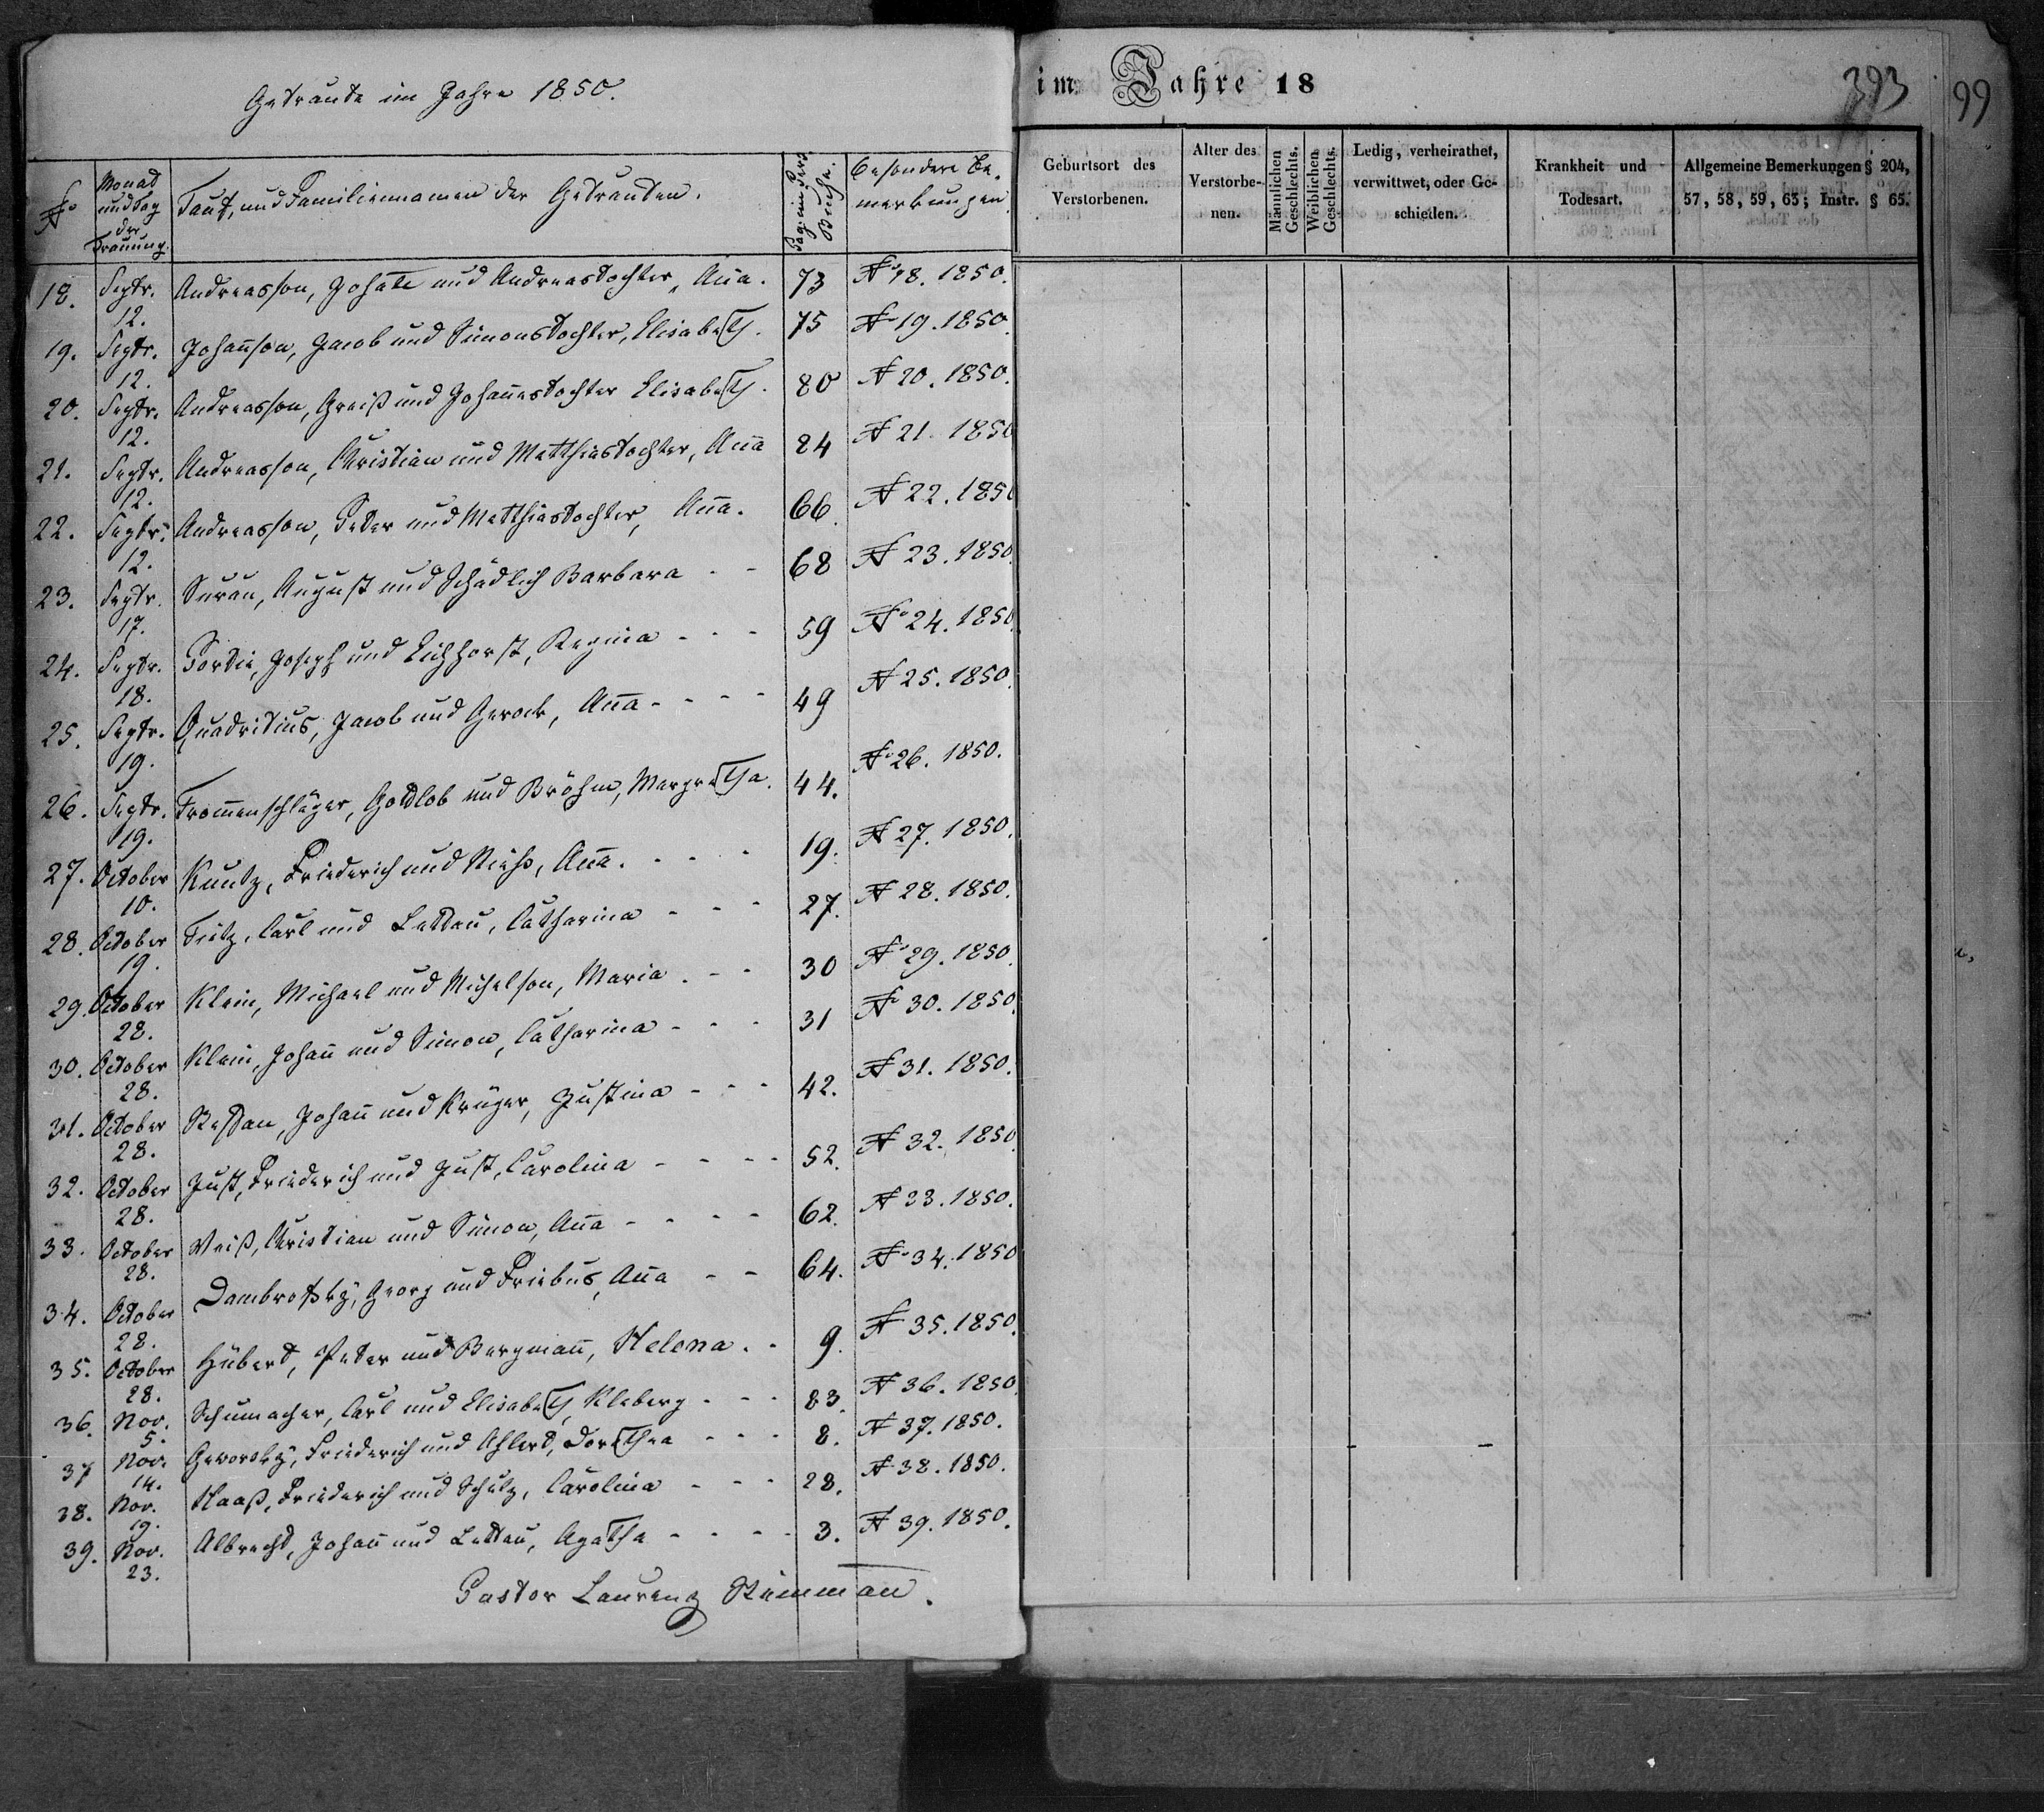 Getraute im Jahre 1850.
№ Monat und Tag der Trauung. Tauf, und Familiennamen der Getrauten. Pag: im Pers. Buche. Besondere Be-
merkungen.
18. Septr. 12. Andreasson, Johann und Andreastochter, Anna. 73 № 18. 1850.
19. Septr. 12. Johannson, Jacob und Simonstochter, Elisabeth. 75 № 19. 1850.
20. Septr. 12. Andreasson, Greiß und Johannestochter Elisabeth. 80 № 20. 1850.
21. Septr. 12. Andreasson, Christian und Matthiastochter, Anna 84 № 21. 1850
22. Septr. 12. Andreasson, Peter und Matthiastochter, Anna. 66. № 22. 1850
23. Septr. 17. Surau, August und Schädlich Barbara - - 68 № 23. 1850.
24. Septr. 18. Portie, Joseph und Eichhorst, Regina - - - 59 № 24. 1850.
25. Septr. 19. Quadritius, Jacob und Gerock, Anna - - - - 49 № 25. 1850.
26. Septr. 19. Trommenschläger, Gottlob und Bröhm, Margretha. 44. № 26. 1850.
27. October 10. Kuntz, Friederich und Rieß, Anna. - - - 19. № 27. 1850.
28. October 19. Fritz, Carl und Lettau, Catharina - - - 27. № 28. 1850.
29. October 28. Klein, Michael und Michelson, Maria. - - 30 № 29. 1850.
30. October 28. Klein, Johann und Simon, Catharina - - - 31 № 30. 1850.
31. October 28. Restau, Johann und Krüger, Justina - - - 42. № 31. 1850.
32. October 28. Just, Friederich und Just, Carolina - - - - 52. № 32. 1850
33. October 28. Weiß, Christian und Simon, Anna - - - - 62. № 33. 1850.
34. October 28. Dambrofsky, Georg und Priebus, Anna - - 64. № 34. 1850
35. October 28. Hübert, Peter und Bergmann, Helena. - 9. № 35. 1850.
36. Nov. 5. Schumacher, Carl und Elisabeth, Kleberg - - - 23. № 36. 1850.
37 Nov. 14. Geworsky, Friederich und Ahlert, Dorothea - - - 8. № 37. 1850.
38. Nov. 19. Haaß, Friederich und Schulz, Carolina - - - 28. № 38. 1850.
39. Nov. 23. Albrecht, Johann und Lettau, Agatha - - - - 3. № 39. 1850.
Pastor Laurenz
im Jahre 18
393
99
Geburtsort des
Verstorbenen.
Alter des
Verstorbe-
nen.
Männlichen
Geschlechts.
Weiblichen
Geschlechts.
Ledig, verheirathet,
verwittwet, oder Ge-
schieden.
Krankheit und
Todesart.
Allgemeine Bemerkungen § 204,
57, 58, 59, 63; Instr. § 65.